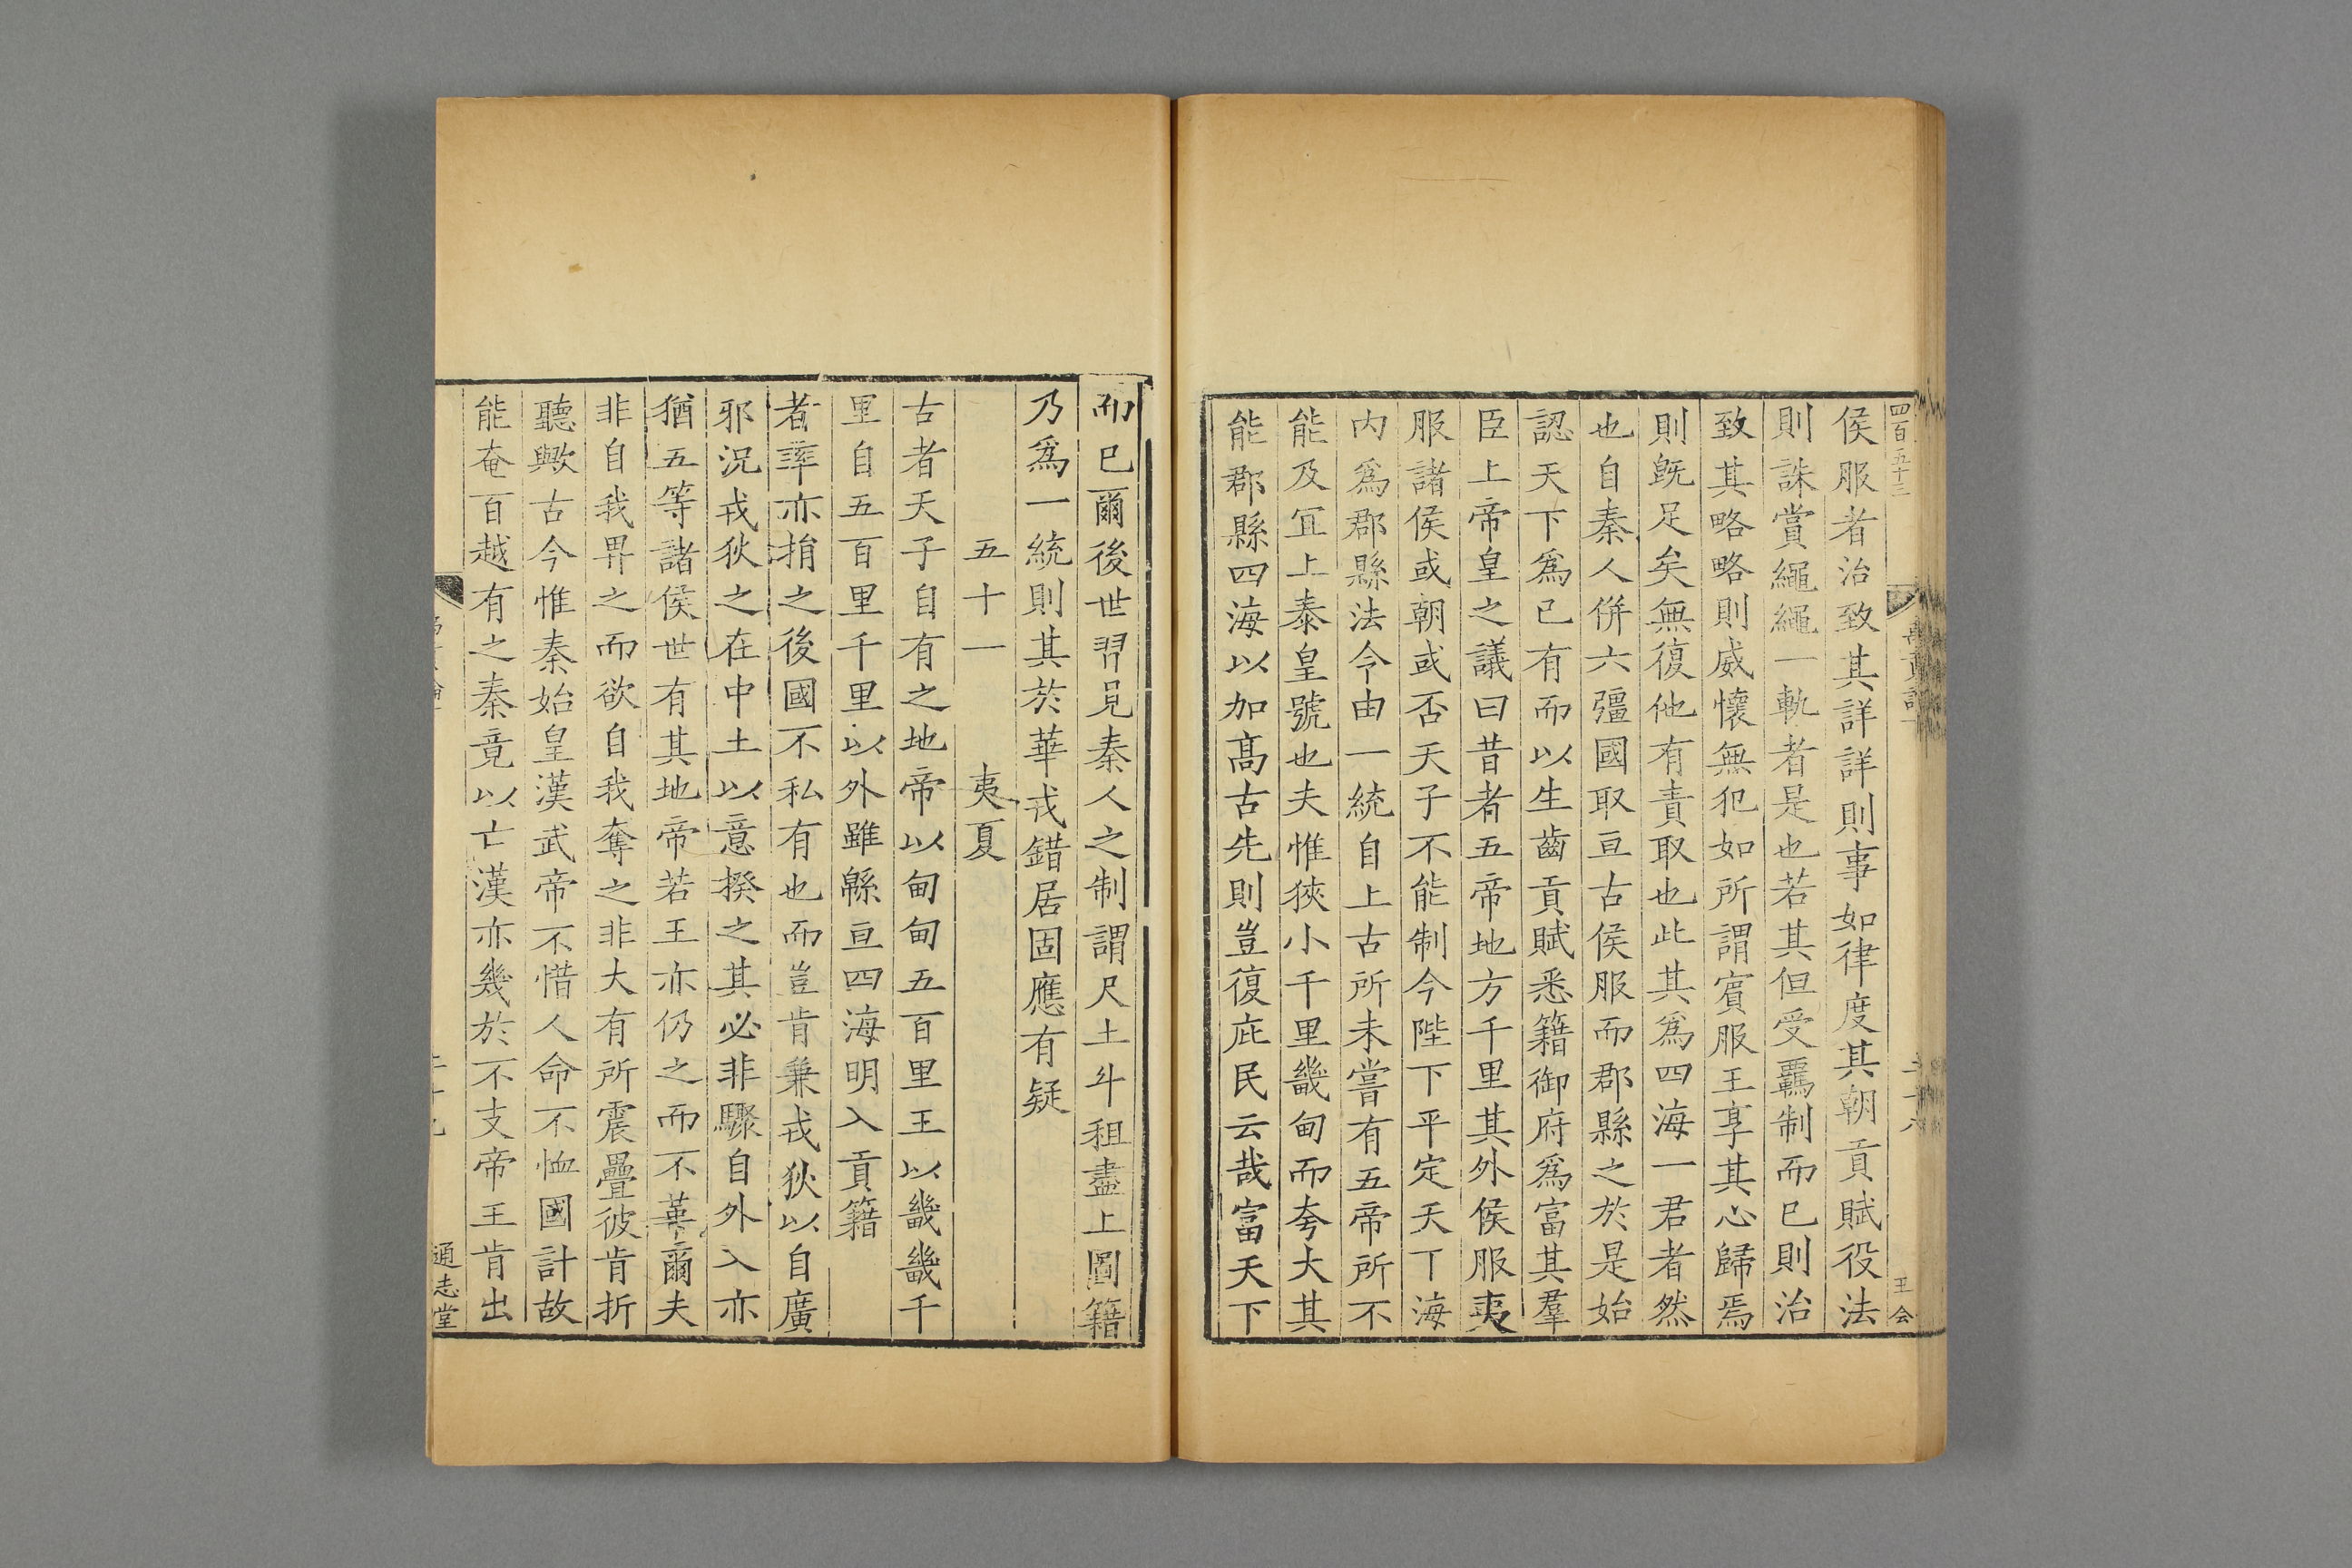 四百五十三
禹貢論下
王公
侯服者治致其詳詳則事如律度其朝貢賦役法
則誅賞繩繩一軌者是也若其但受羈制而已則治
致其略略則威懷無犯如所謂賓服王享其心歸焉
則旣足矣無復他有責取也此其爲四海一君者然
也自秦人併六彊國取亘古侯服而郡縣之於是始
認天下爲己有而以生齒貢賦悉籍御府爲富其羣
臣上帝皇之議曰昔者五帝地方千里其外侯服夷
服諸侯或朝或否天子不能制今陛下平定天丁海
內爲郡縣法令由一統自上古所未嘗有五帝所不
能及冝上泰皇號也夫惟狹小千里畿甸而夸大其
能郡縣四海以加高古先則豈復庇民云哉富天下
而已爾後世習見秦人之制謂尺土斗租盡上圖籍
乃爲一統則其於華戎錯居固應有疑
五十一 夷夏
古者天子自有之地帝以甸甸五百里王以畿畿千
里自五百里千里以外雖緜亘四海明入貢籍
者率亦捐之後國不私有也而豈肯兼戎狄以自廣
邪況戎狄之在中土以意揆之其必非驟自外入亦
猶五等諸侯世有其地帝若王亦仍之而不革爾夫
非自我畀之而欲自我奪之非大有所震疊彼肯折
聽歟古今惟秦始皇漢武帝不惜人命不恤國計故
能奄百越有之秦竟以亡漢亦幾於不支帝王肯出
通志堂